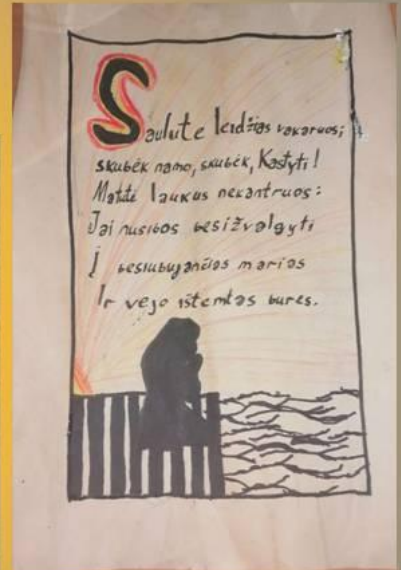 Saulutė leidžias vakaruos;
skubėk namo, skubėk, Kastyti!
Matutė laukus nekantruos:
Jai nusibos besižvalgyti
Į besiubuojančias marias
Ir vėjo ištemptas bures.